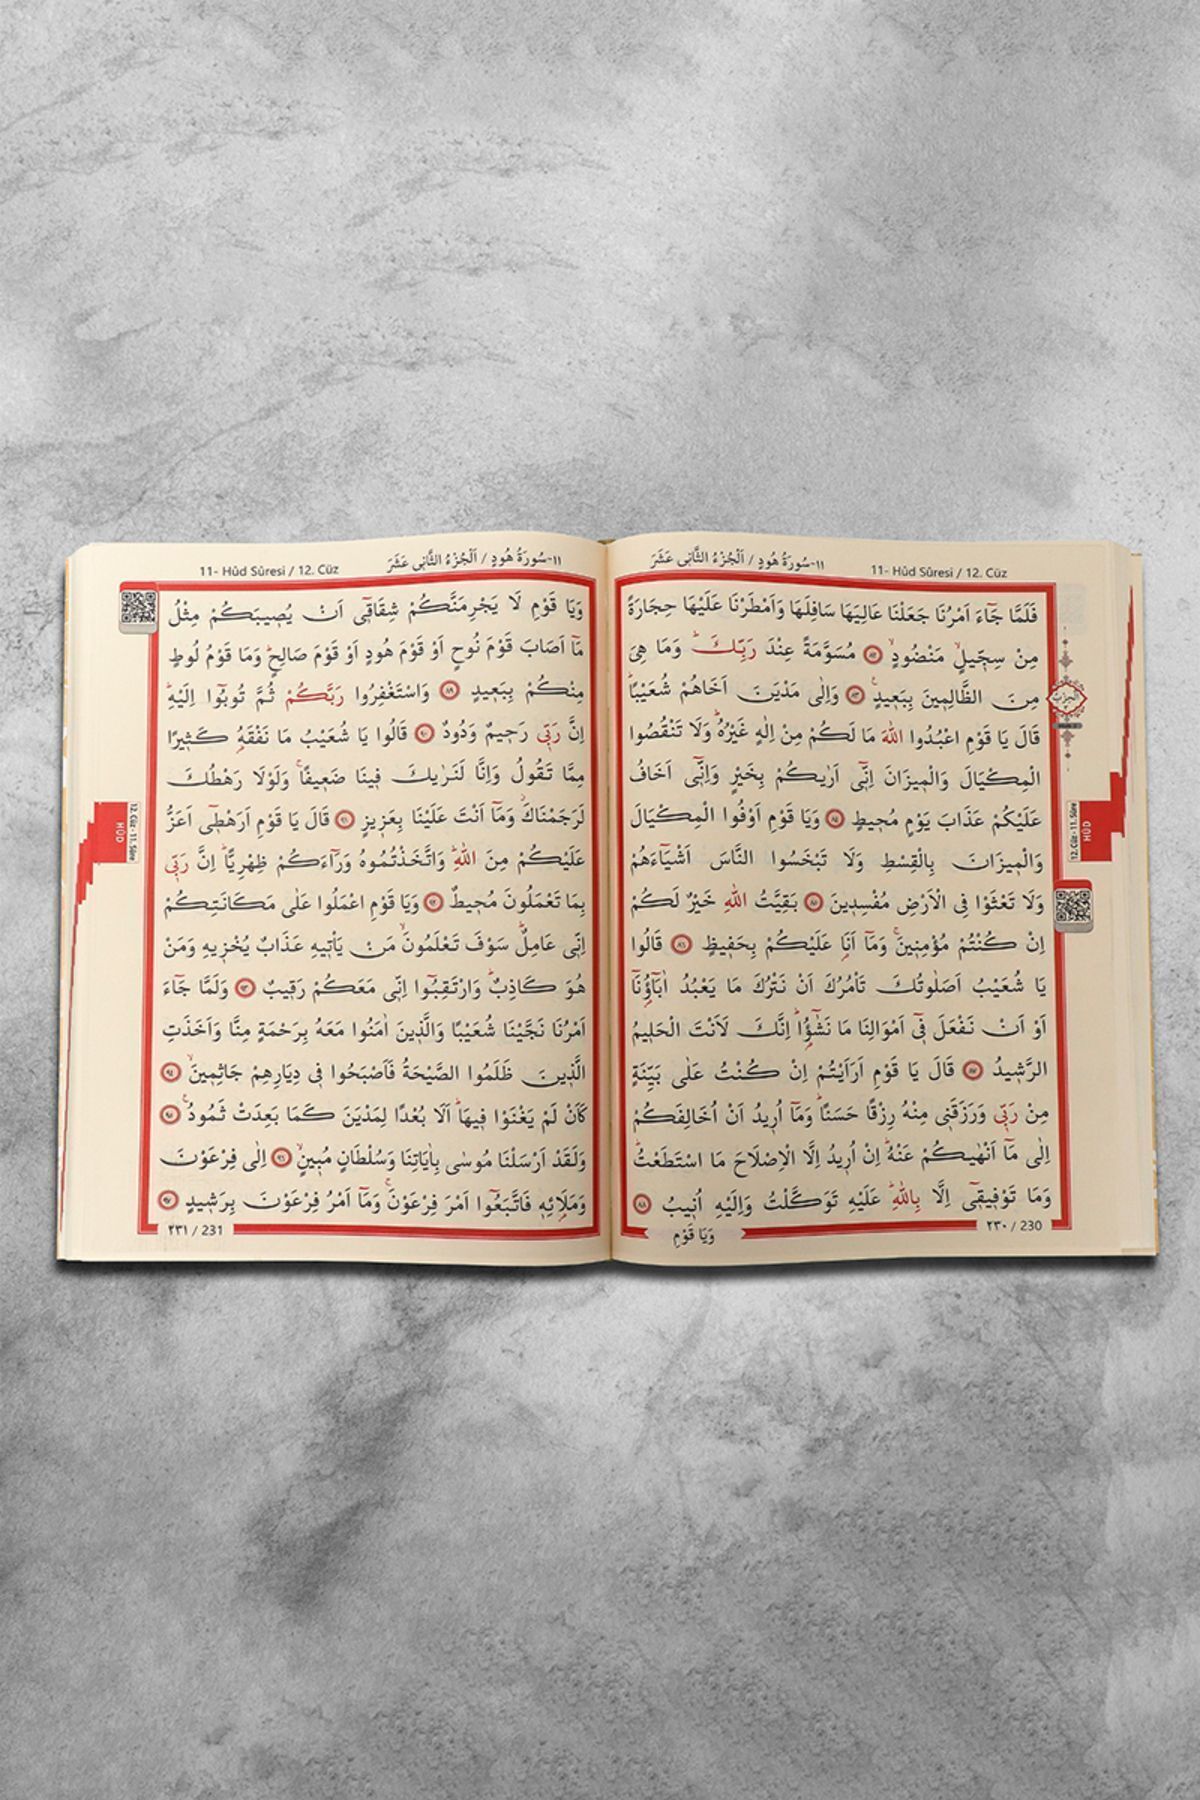 ١١-سُورَةُ هُودٍ / اَلْجُزْءُ الثَّانِى عَشَرَ
11- Hûd Sûresi / 12. Cüz
فَلَمَّا جَٓاءَ اَمْرُنَا جَعَلْنَا عَالِيَهَا سَافِلَهَا وَاَمْطَرْنَا عَلَيْهَا حِجَارَةً
مِنْ سِجّ۪يلٍ مَنْضُودٍۙ ﴿٨٢﴾ مُسَوَّمَةً عِنْدَ رَبِّكَۜ وَمَا هِىَ
مِنَ الظَّالِم۪ينَ بِبَع۪يدٍ۟ ﴿٨٣﴾ وَاِلٰى مَدْيَنَ اَخَاهُمْ شُعَيْبًاۜ
قَالَ يَا قَوْمِ اعْبُدُوا اللّٰهَ مَا لَكُمْ مِنْ اِلٰهٍ غَيْرُهُۜ وَلَا تَنْقُصُوا
الْمِكْيَالَ وَالْم۪يزَانَ اِنّ۪ٓى اَرٰيكُمْ بِخَيْرٍ وَاِنّ۪ٓى اَخَافُ
عَلَيْكُمْ عَذَابَ يَوْمٍ مُح۪يطٍ ﴿٨٤﴾ وَيَا قَوْمِ اَوْفُوا الْمِكْيَالَ
وَالْم۪يزَانَ بِالْقِسْطِ وَلَا تَبْخَسُوا النَّاسَ اَشْيَٓاءَهُمْ
وَلَا تَعْثَوْا فِى الْاَرْضِ مُفْسِد۪ينَ ﴿٨٥﴾ بَقِيَّتُ اللّٰهِ خَيْرٌ لَكُمْ
اِنْ كُنْتُمْ مُؤْمِن۪ينَۚ وَمَٓا اَنَا۬ عَلَيْكُمْ بِحَف۪يظٍ ﴿٨٦﴾ قَالُوا
يَا شُعَيْبُ اَصَلٰوتُكَ تَأْمُرُكَ اَنْ نَتْرُكَ مَا يَعْبُدُ اٰبَٓاؤُ۬نَٓا
اَوْ اَنْ نَفْعَلَ ف۪ٓى اَمْوَالِنَا مَا نَشٰٓؤُ۬اۜ اِنَّكَ لَاَنْتَ الْحَل۪يمُ
الرَّش۪يدُ ﴿٨٧﴾ قَالَ يَا قَوْمِ اَرَاَيْتُمْ اِنْ كُنْتُ عَلٰى بَيِّنَةٍ
مِنْ رَبّ۪ى وَرَزَقَن۪ى مِنْهُ رِزْقًا حَسَنًاۜ وَمَٓا اُر۪يدُ اَنْ اُخَالِفَكُمْ
اِلٰى مَٓا اَنْهٰيكُمْ عَنْهُۜ اِنْ اُر۪يدُ اِلَّا الْاِصْلَاحَ مَا اسْتَطَعْتُۜ
وَمَا تَوْف۪يق۪ٓى اِلَّا بِاللّٰهِۜ عَلَيْهِ تَوَكَّلْتُ وَاِلَيْهِ اُن۪يبُ ﴿٨٨﴾
٢٣٠ / 230
وَيَا قَوْمِ
12. Cüz - 11. Sûre
HÛD
١١-سُورَةُ هُودٍ / اَلْجُزْءُ الثَّانِى عَشَرَ
11- Hûd Sûresi / 12. Cüz
وَيَا قَوْمِ لَا يَجْرِمَنَّكُمْ شِقَاق۪ٓى اَنْ يُص۪يبَكُمْ مِثْلُ
مَٓا اَصَابَ قَوْمَ نُوحٍ اَوْ قَوْمَ هُودٍ اَوْ قَوْمَ صَالِحٍۜ وَمَا قَوْمُ لُوطٍ
مِنْكُمْ بِبَع۪يدٍ ﴿٨٩﴾ وَاسْتَغْفِرُوا رَبَّكُمْ ثُمَّ تُوبُٓوا اِلَيْهِۜ
اِنَّ رَبّ۪ى رَح۪يمٌ وَدُودٌ ﴿٩٠﴾ قَالُوا يَا شُعَيْبُ مَا نَفْقَهُ كَث۪يرًا
مِمَّا تَقُولُ وَاِنَّا لَنَرٰيكَ ف۪ينَا ضَع۪يفًاۚ وَلَوْلَا رَهْطُكَ
لَرَجَمْنَاكَۘ وَمَٓا اَنْتَ عَلَيْنَا بِعَز۪يزٍ ﴿٩١﴾ قَالَ يَا قَوْمِ اَرَهْط۪ٓى اَعَزُّ
عَلَيْكُمْ مِنَ اللّٰهِۜ وَاتَّخَذْتُمُوهُ وَرَٓاءَكُمْ ظِهْرِيًّاۜ اِنَّ رَبّ۪ى
بِمَا تَعْمَلُونَ مُح۪يطٌ ﴿٩٢﴾ وَيَا قَوْمِ اعْمَلُوا عَلٰى مَكَانَتِكُمْ
اِنّ۪ى عَامِلٌۜ سَوْفَ تَعْلَمُونَۙ مَنْ يَأْت۪يهِ عَذَابٌ يُخْز۪يهِ وَمَنْ
هُوَ كَاذِبٌۜ وَارْتَقِبُٓوا اِنّ۪ى مَعَكُمْ رَق۪يبٌ ﴿٩٣﴾ وَلَمَّا جَٓاءَ
اَمْرُنَا نَجَّيْنَا شُعَيْبًا وَالَّذ۪ينَ اٰمَنُوا مَعَهُ بِرَحْمَةٍ مِنَّا وَاَخَذَتِ
الَّذ۪ينَ ظَلَمُوا الصَّيْحَةُ فَاَصْبَحُوا ف۪ى دِيَارِهِمْ جَاثِم۪ينَۙ ﴿٩٤﴾
كَاَنْ لَمْ يَغْنَوْا ف۪يهَاۜ اَلَا بُعْدًا لِمَدْيَنَ كَمَا بَعِدَتْ ثَمُودُ۟ ﴿٩٥﴾
وَلَقَدْ اَرْسَلْنَا مُوسٰى بِاٰيَاتِنَا وَسُلْطَانٍ مُب۪ينٍۙ ﴿٩٦﴾ اِلٰى فِرْعَوْنَ
وَمَلَا۬ئِه۪ فَاتَّبَعُٓوا اَمْرَ فِرْعَوْنَۚ وَمَٓا اَمْرُ فِرْعَوْنَ بِرَش۪يدٍ ﴿٩٧﴾
٢٣١ / 231
12. Cüz - 11. Sûre
HÛD